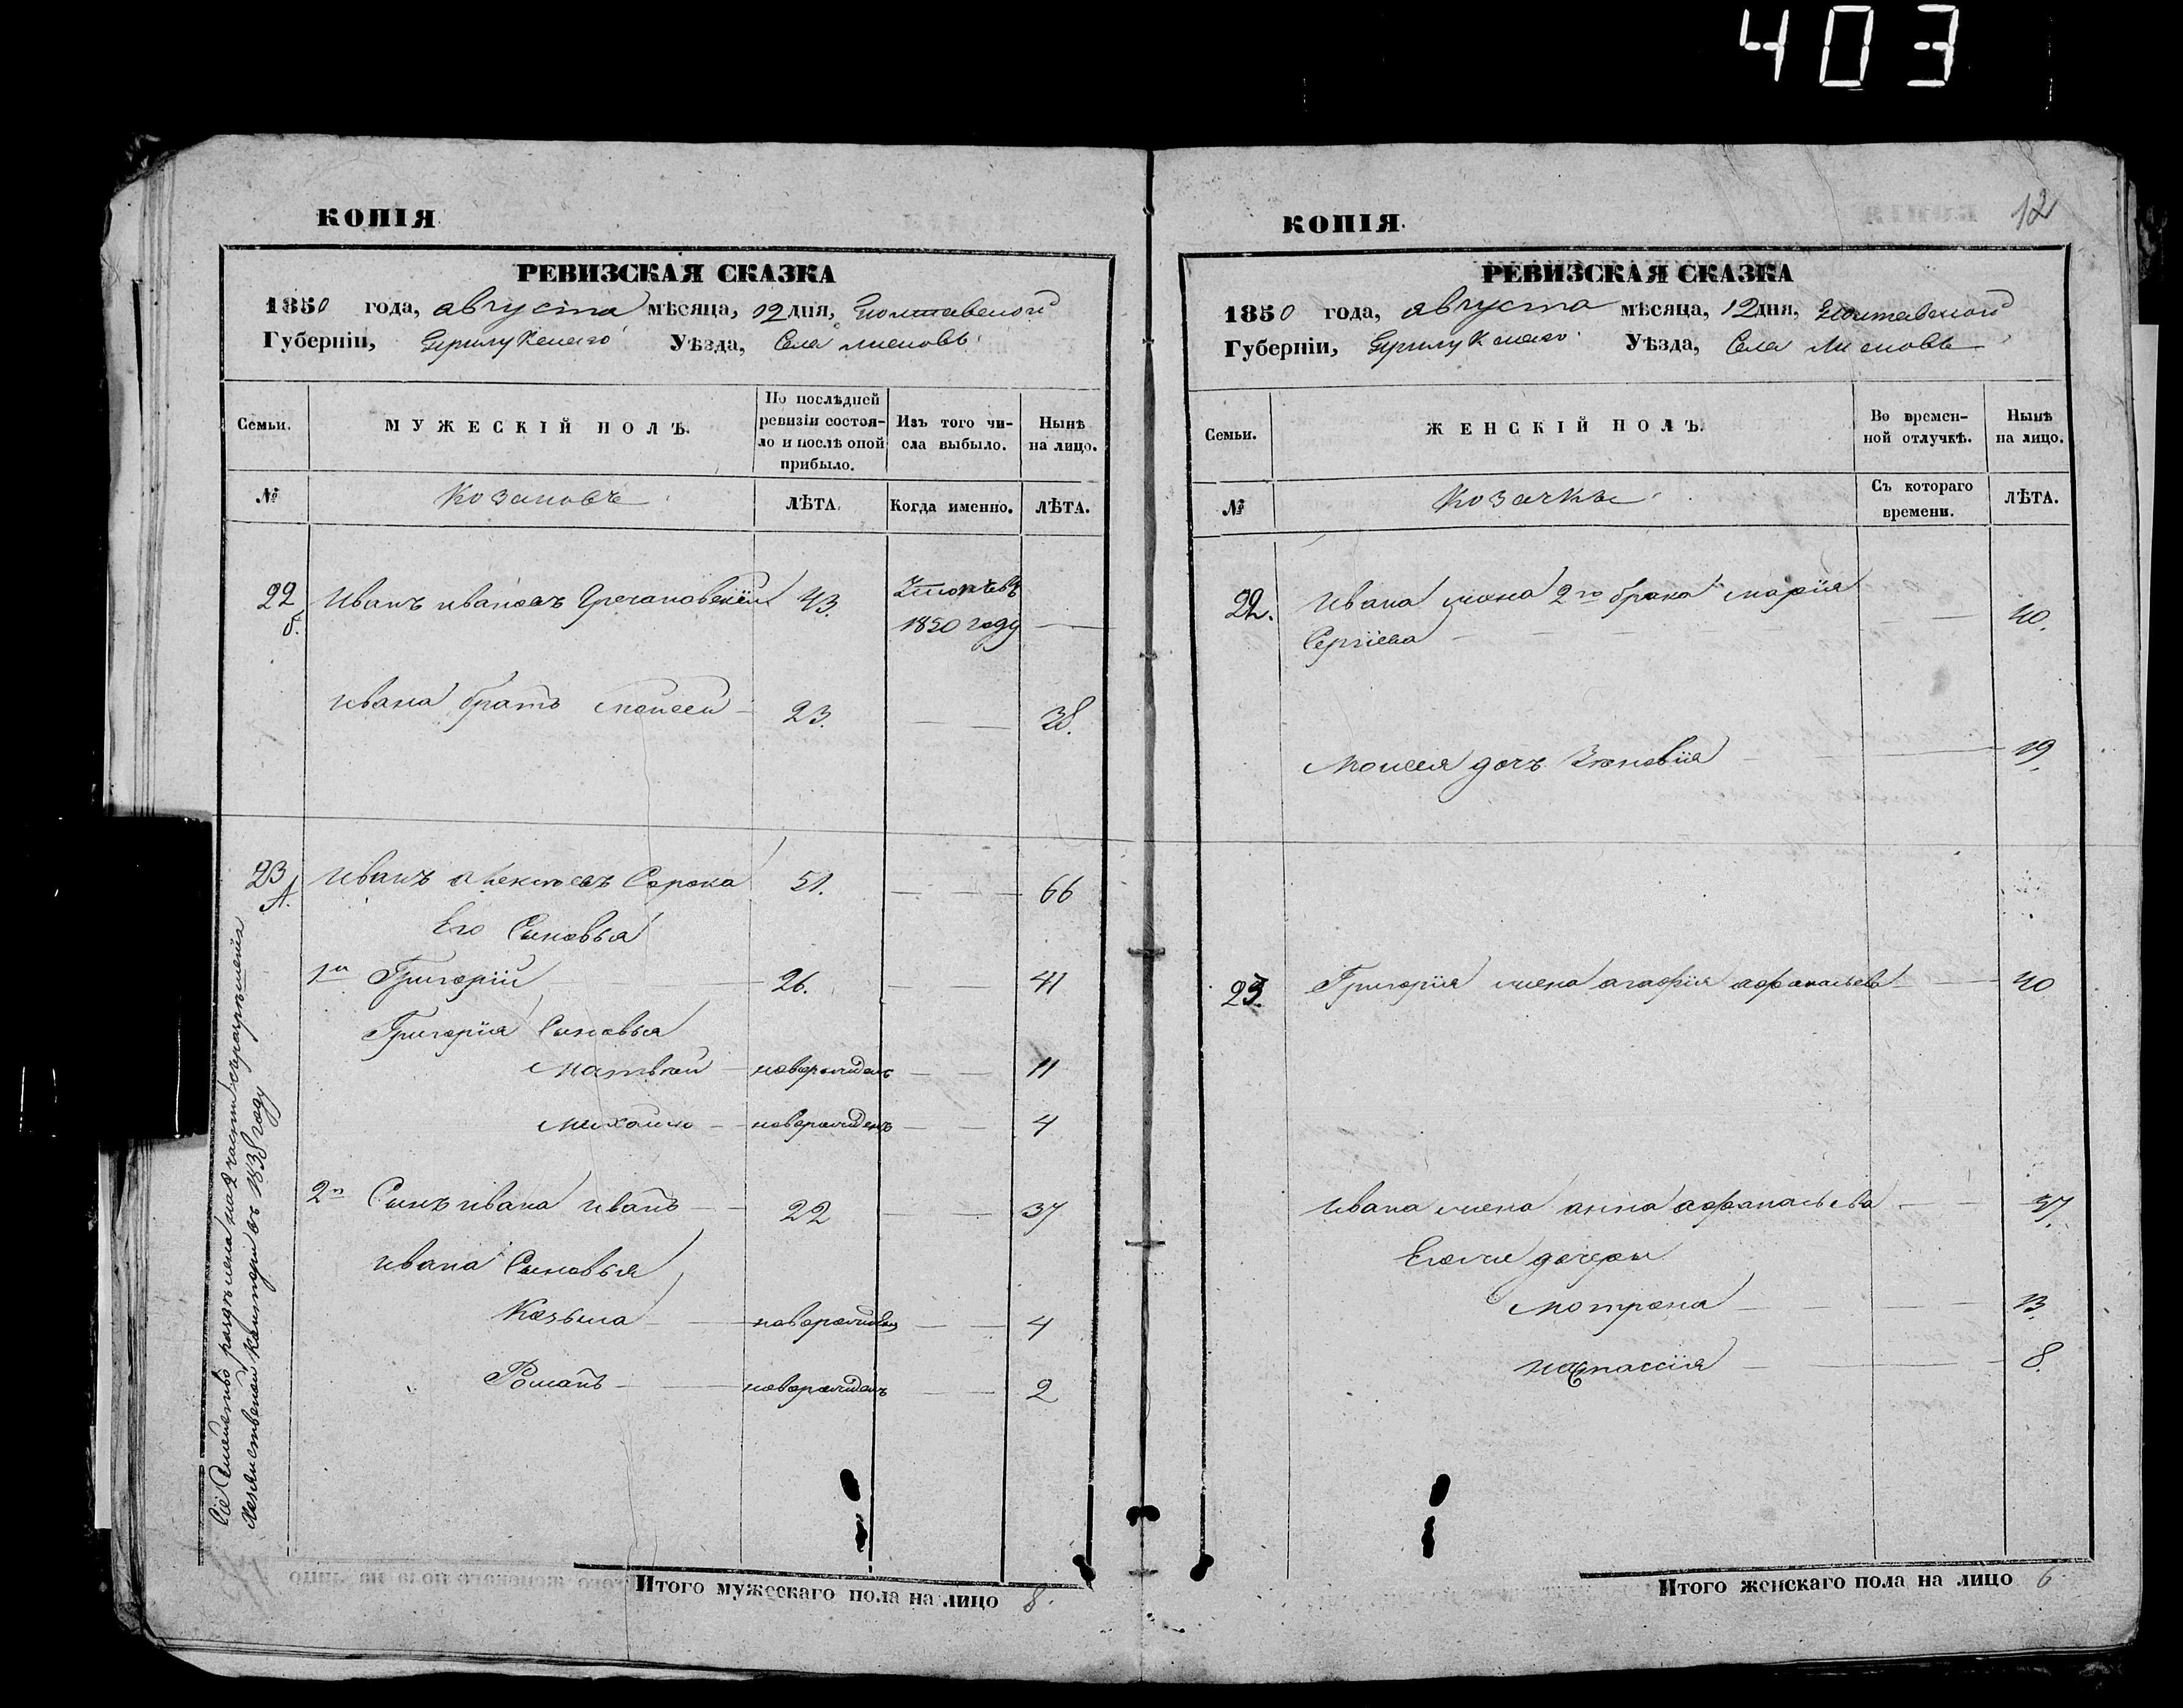 403
КОПІЯ
РЕВИЗСКАЯ СКАЗКА
1850 года, августа мѣсяца, 12 дня, Полтавской
Губерніи, Прилукскаго Уѣзда, Села
Семьи.
МУЖЕСКІЙ ПОЛЪ.
По послѣдней ревизіи состояло и послѣ оной прибыло.
Изъ того числа выбыло.
Нынѣ на лицо.
№
Козаковъ
ЛѢТА.
Когда именно.
ЛѢТА.
22 Иванъ Ивановъ 43. 1850 году —
б.
Ивана братъ Моисей — 23. — — 38.
23 Иванъ Алексѣевъ Сорока 51. — — 66
А.
Его Сыновья
1й Григорій 26. — — 41
Григорія Сыновья
Матвѣй — новорожденъ — — 11
Михайло — новорожденъ — — 4
2й Сынъ Ивана Иванъ — 22 — — 37
Ивана Сыновья
Козьма — новорожденъ — — 4
Романъ — новорожденъ — — 2
Сіе Семейство раздѣлено на 2 части съ разрѣшенія
Хозяйственной Конторы въ 1838 году
Итого мужескаго пола на лицо 8.
12
КОПІЯ.
РЕВИЗСКАЯ СКАЗКА
1850 года, августа мѣсяца, 12 дня, Полтавской
Губерніи, Прилукскаго Уѣзда, Села
Семьи.
ЖЕНСКІЙ ПОЛЪ.
Во временной отлучкѣ.
Нынѣ на лицо.
№
Козачки
Съ котораго времени.
ЛѢТА.
22. Ивана жена 2го брака Марія
Сергіева — — 40.
Моисея дочь Зѣновія — 19.
23. Григорія жена Агафія Афанасьева — 40
Ивана жена Анна Афанасьева — — 37.
Его же дочери
Мотрона — 13.
Настасія — 8.
Итого женскаго пола на лицо 6